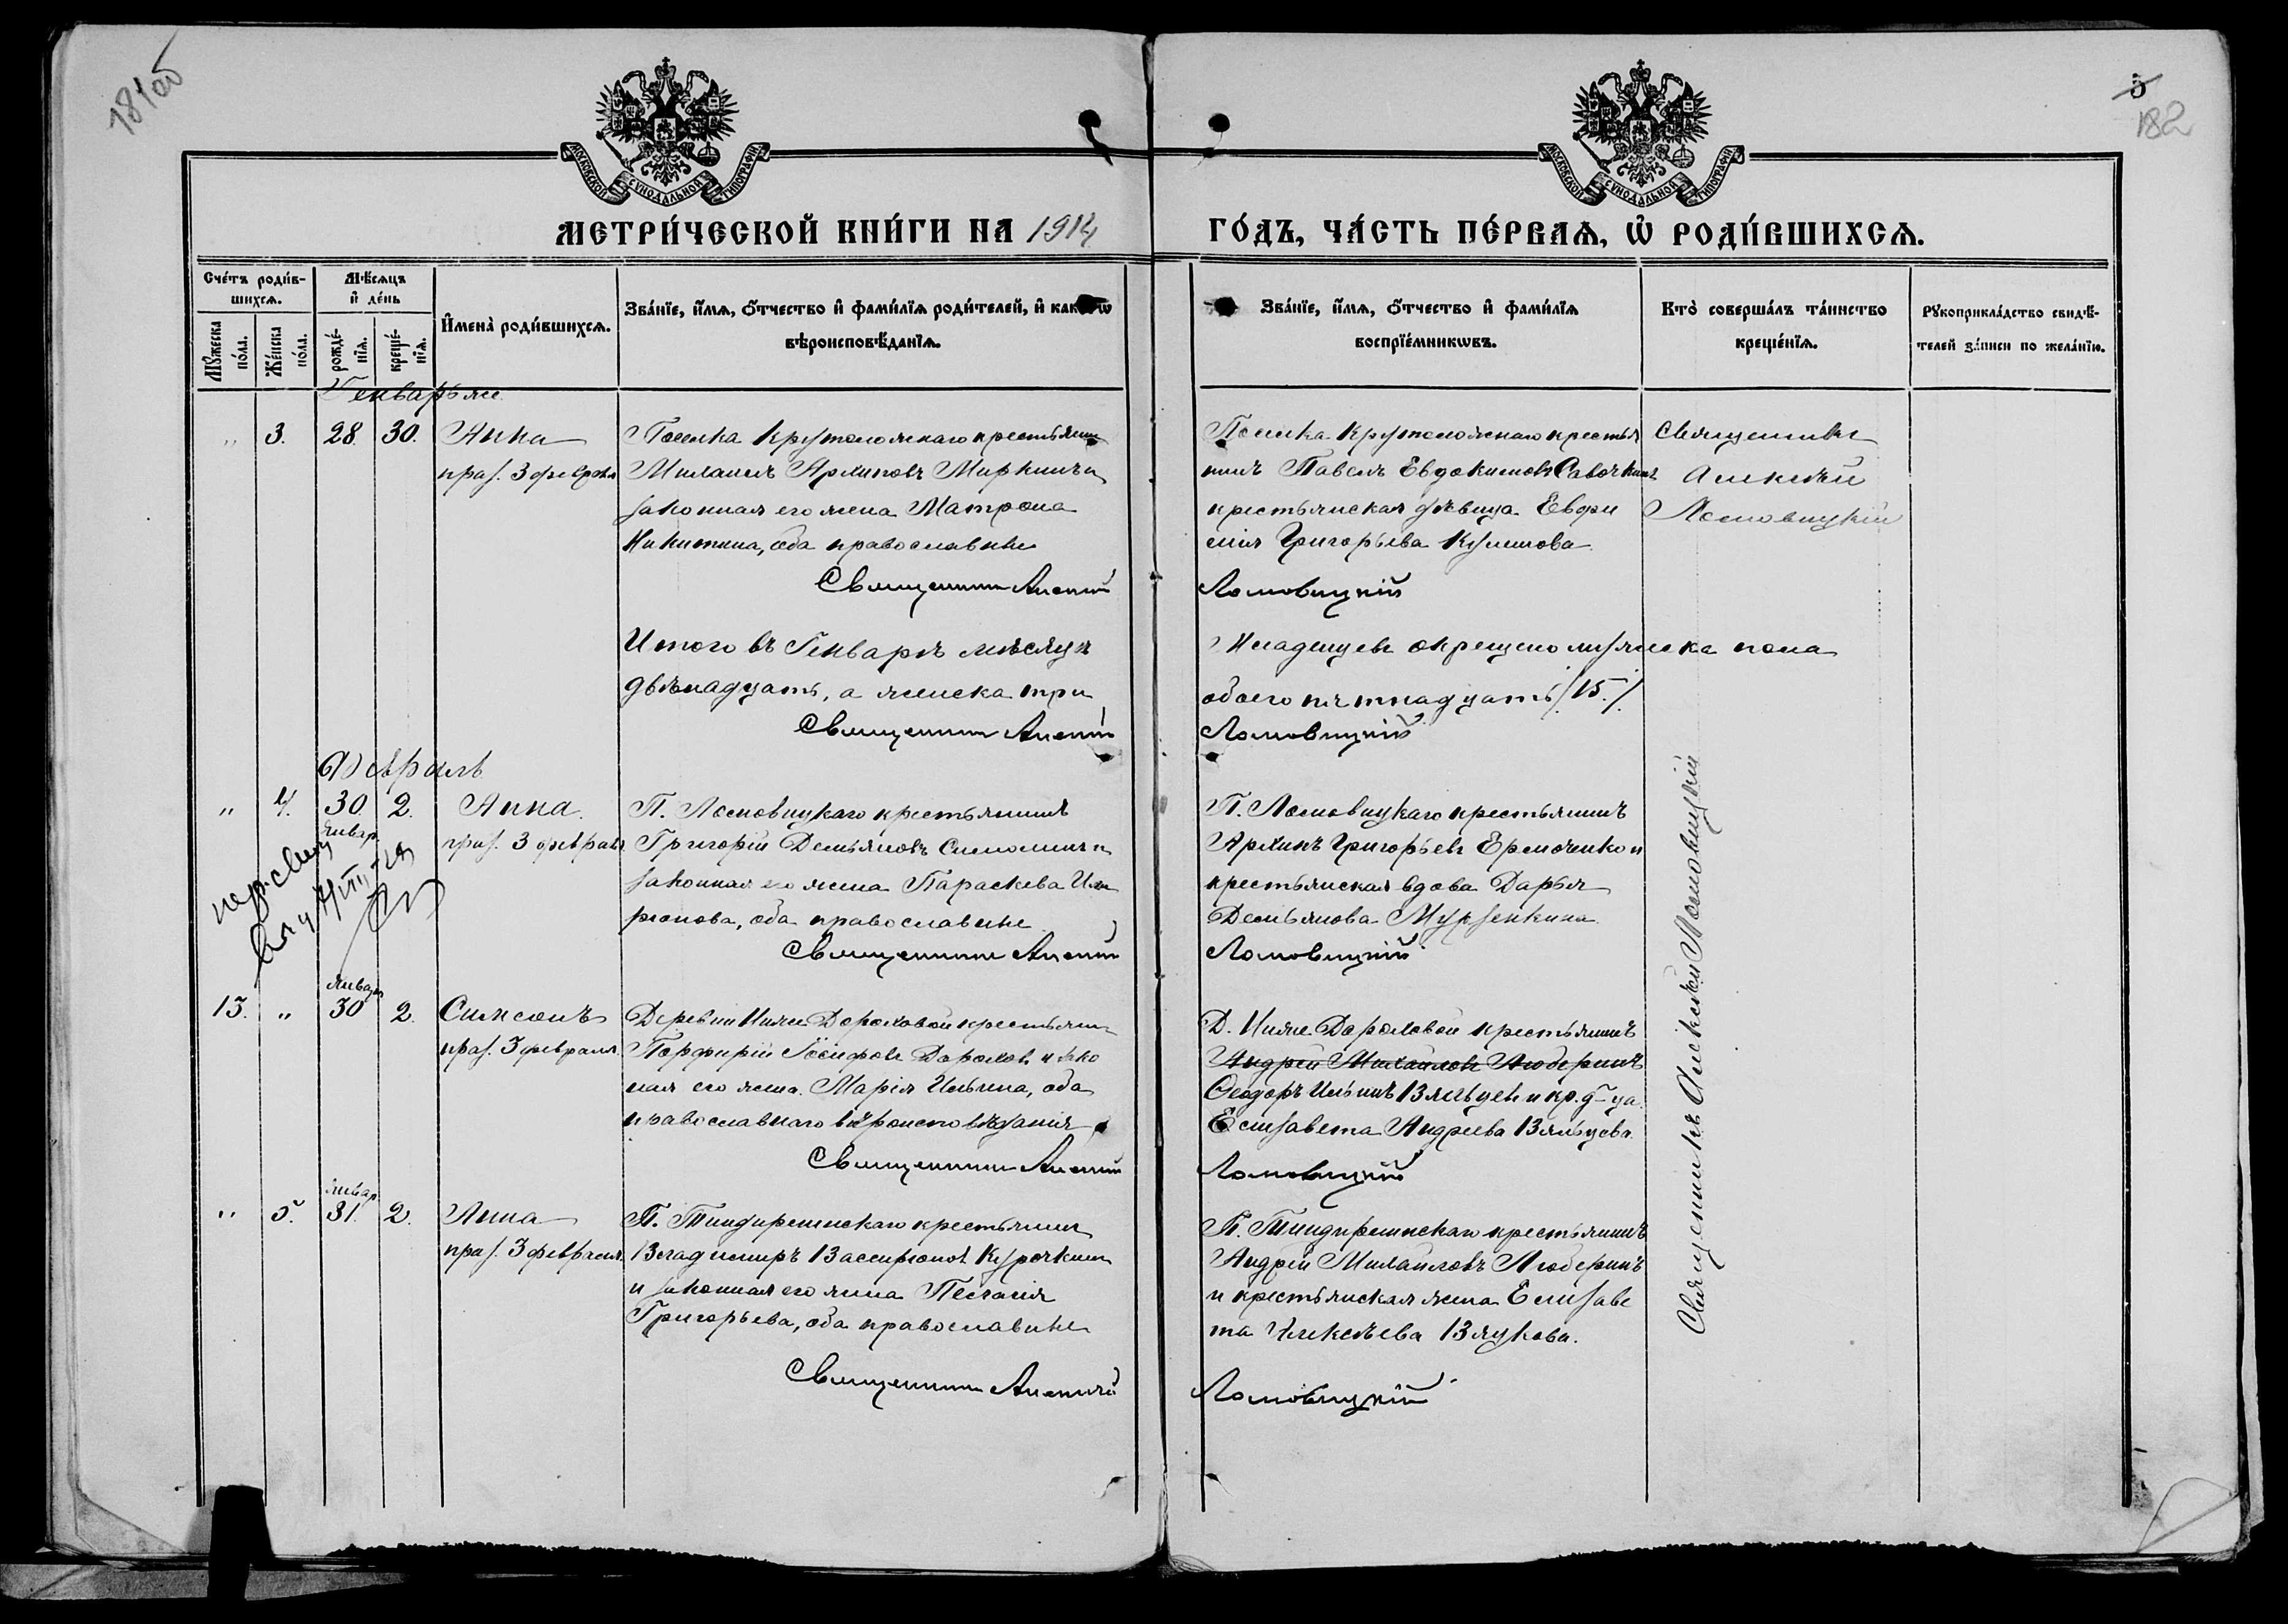 181об
5
182
МОСКОВСКОЙ СѴНОДАЛЬНОЙ ТИПОГРАФІИ
МОСКОВСКОЙ СѴНОДАЛЬНОЙ ТИПОГРАФІИ
МЕТРИ́ЧЕСКОЙ КНИ́ГИ НА 1914
ГО́ДЪ, ЧА́СТЬ ПЕ́РВАѦ, Ѡ РОДИ́ВШИХСѦ.
Сче́тъ роди́в-
шихсѧ.
Мꙋ́жеска
по́ла.
Же́нска
по́ла.
Мѣ́сѧцъ
и҆ де́нь
рожде́-
нїѧ.
креще́-
нїѧ.
И҆мена̀ роди́вшихсѧ.
Зва́нїе, и҆́мѧ, ѻ҆́тчество и҆ фами́лїѧ роди́телей, и҆ како́гѡ
вѣроисповѣ́данїѧ.
Зва́нїе, и҆́мѧ, ѻ҆́тчество и҆ фами́лїѧ
воспрїе́мникѡвъ.
Кто̀ соверша́лъ та́инство
креще́нїѧ.
Рꙋкоприкла́дство свидѣ́-
телей за́писи по жела́нїю.
Генварь
„ 3. 28. 30. Анна
праз. 3 февраля
Поселка Крутоложнаго крестьянин
Михаилъ Архиповъ Миркинъ и
законная его жена Матрона
Никитина, оба православные
Священникъ Алексій
Поселка Крутоложнаго крестья
нинъ Павелъ Евдокимовъ Савочкинъ
крестьянская дѣвица Евфи
мія Григорьева Кулешова
Ломовицкій
Священникъ
Алексѣй
Ломовицкій
Итого въ Генварѣ мѣсяцѣ
двѣнадцать, а женска три
Священникъ Алексій
Младенцевъ окрещено мужеска пола
обоего пятнадцать /15./
Ломовицкій
Февраль
„ 4. 30 2. Анна.
январ
праз. 3 февраля
П. Ломовицкаго крестьянинъ
Григорій Демьяновъ и
законная его жена Параскева Ила
ріонова, оба православные
Священникъ Алексій
П. Ломовицкаго крестьянинъ
Архипъ Григорьевъ Ермоченко и
крестьянская вдова Дарья
Демьянова Мурзенкина
Ломовицкій
январ
13. „ 30 2. Симеонъ
праз. 3 февраля.
Деревни Ниж. Дороховой крестьянин
Порфирій Іосифовъ Дороховъ и зако
ная его жена Марія Ильина, оба
православнаго вѣроисповѣданія
Священникъ Алексій
Д. Ниж. Дороховой крестьянинъ
Андрей Михайловъ Люберинъ
Ѳеодоръ Ильинъ Вяльцевъ и кр. д-ца
Елизавета Андреева Вяльцева.
Ломовицкій
январ
„ 5. 31. 2. Анна
праз. 3 февраля.
П. Тиндирешскаго крестьянин
Владимиръ Вассиріоновъ Курочкин
и законная его жена Пелагія
Григорьева, оба православные
Священникъ Алексій
П. Тиндирешскаго крестьянинъ
Андрей Михайловъ Люберинъ
и крестьянская жена Елизаве
та Алексѣева Взлукова.
Ломовицкій
Священникъ Алексѣй Ломовицкій